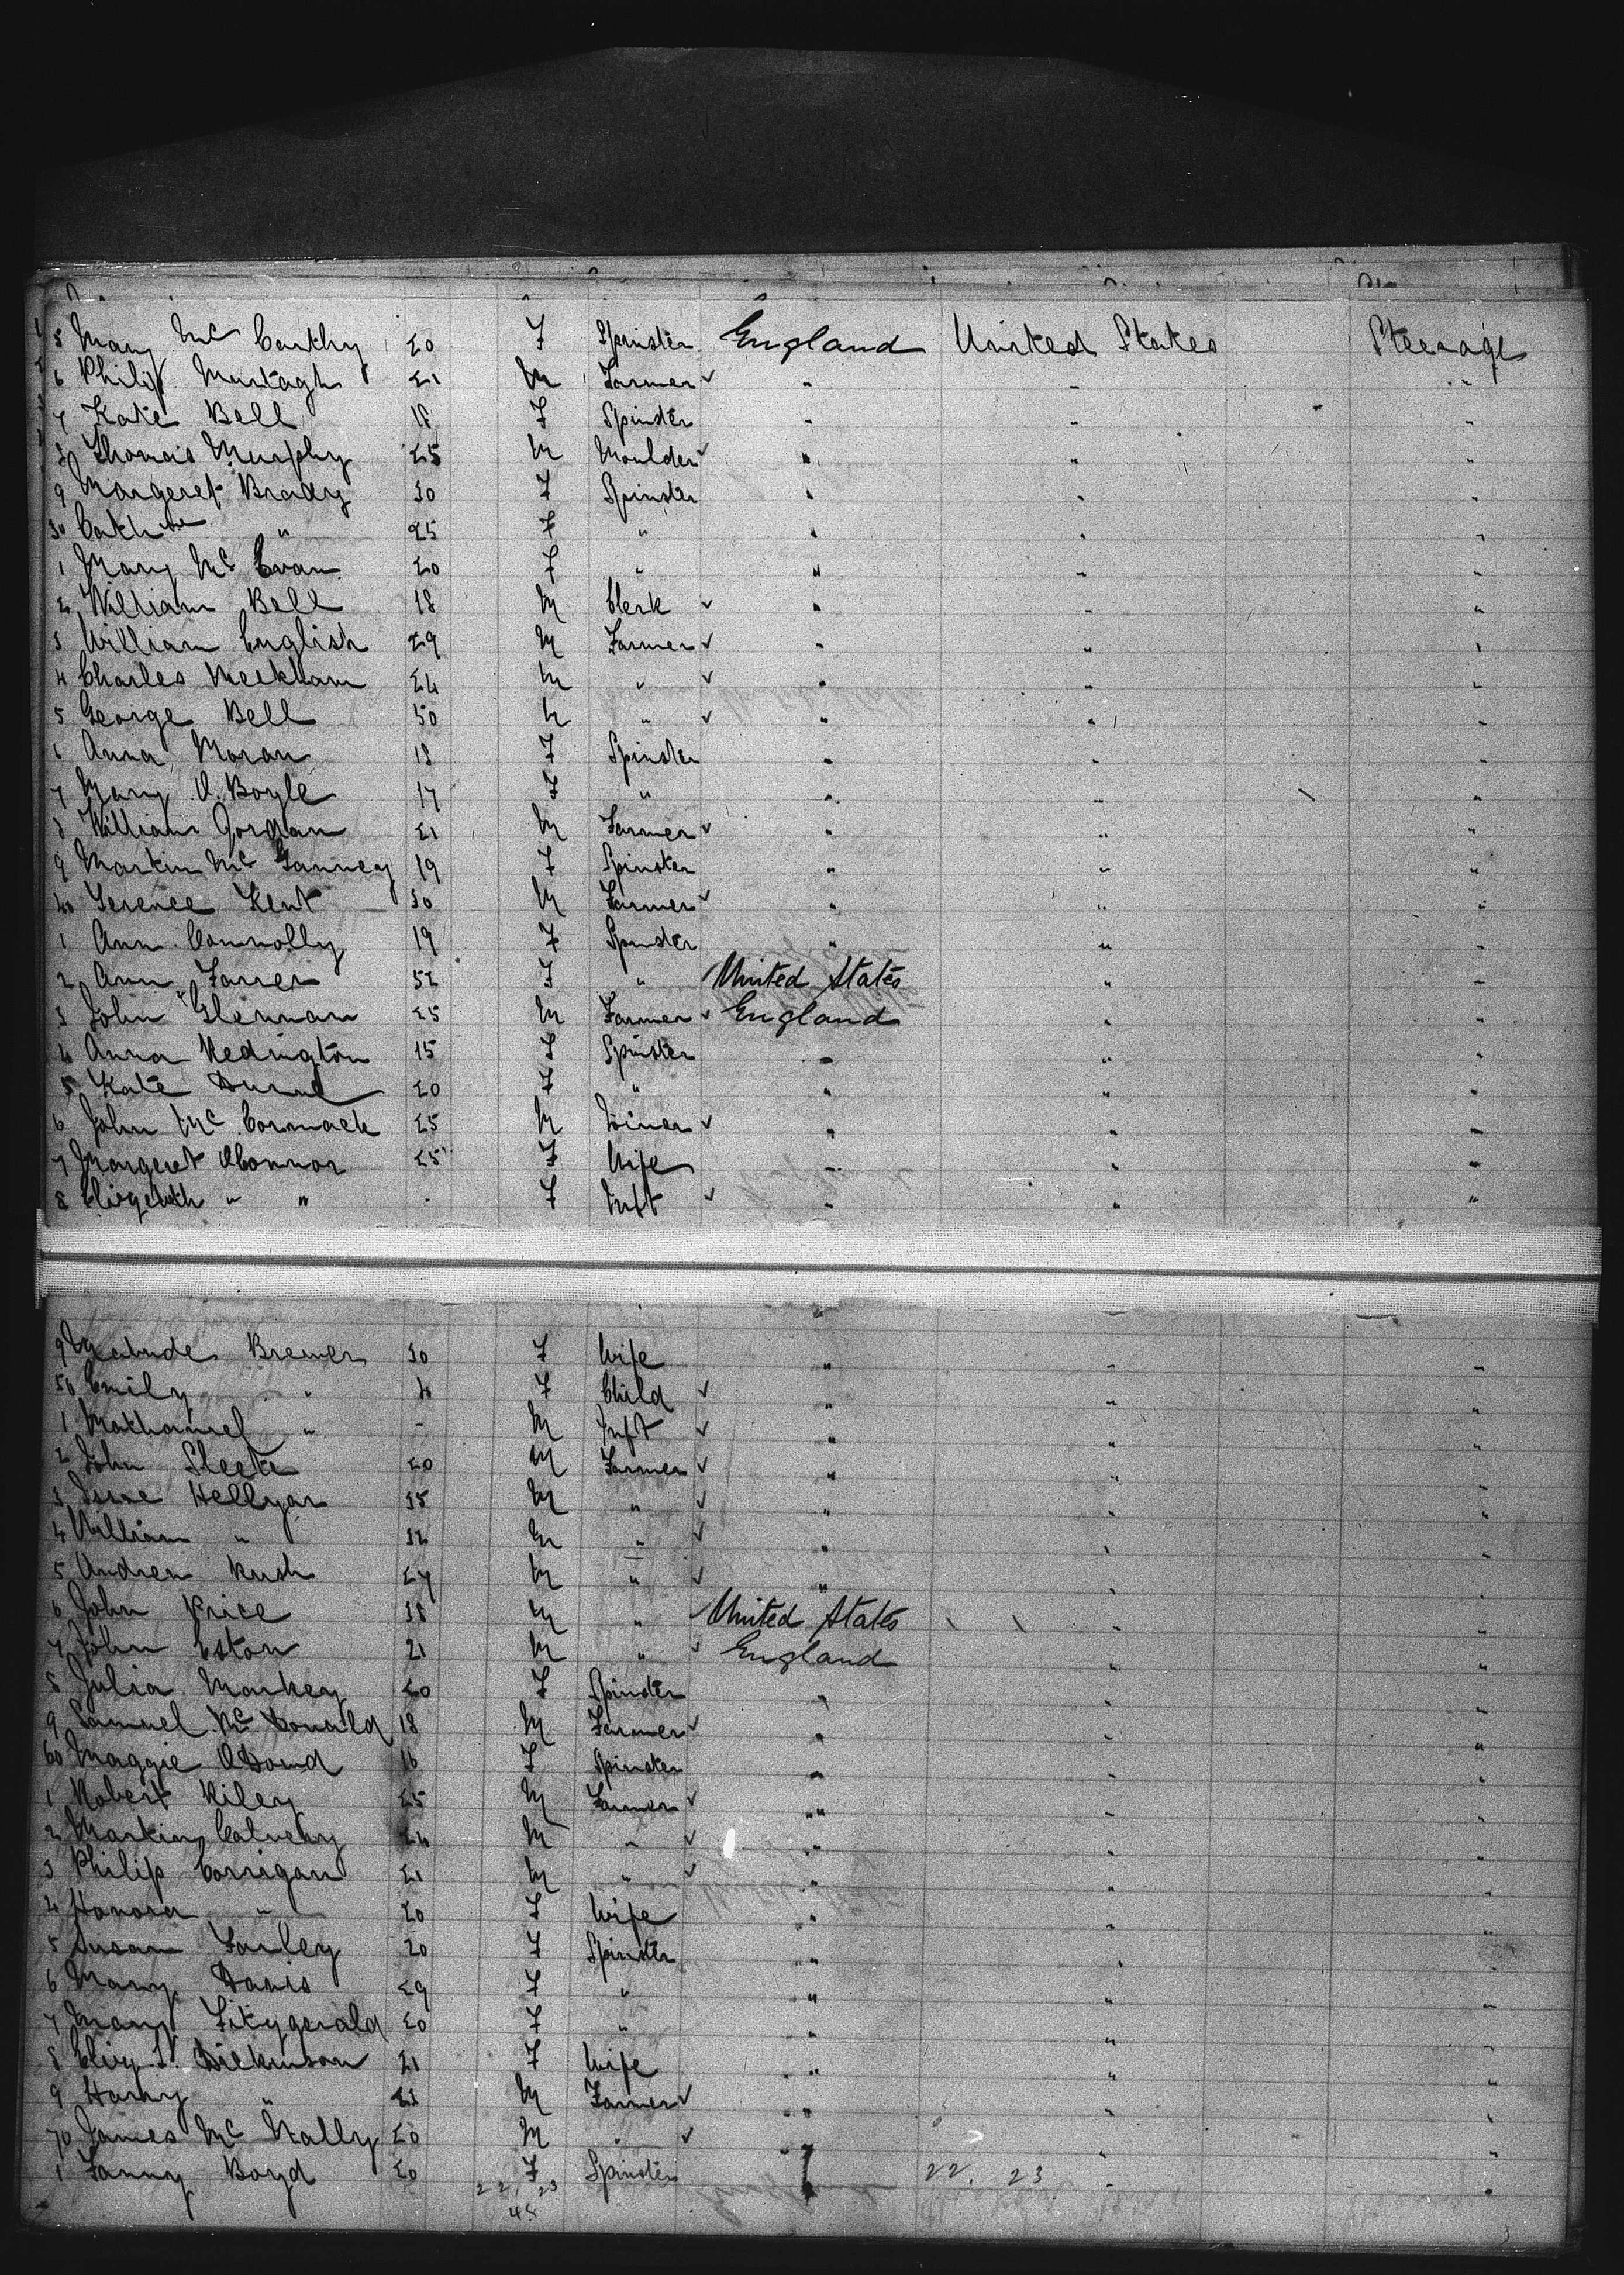 5 Mary Mc Carthy 20 F Spinster England United States Steerage
6 Philip Murtagh 21 M Farmer ✓ " " "
7 Kate Bell 18 F Spinster " " "
8 Thomas Murphy 25 M Moulder ✓ " " "
9 Margeret Brady 30 F Spinster " " "
30 Cathne " 25 F " " " "
1 Mary Mc Evan 20 F " " " "
2 William Bell 18 M Clerk ✓ " " "
3 William English 29 M Farmer ✓ " " "
4 Charles Meekham 24 M " ✓ " " "
5 George Bell 50 M " ✓ " " "
6 Anna Moran 18 F Spinster " " "
7 Mary O.Boyle 17 F " " " "
8 William Jordan 21 M Farmer ✓ " " "
9 Martin Mc 19 F Spinster " " "
40 Terence Kent 30 M Farmer ✓ " " "
1 Ann Connolly 19 F Spinster " " "
2 Ann Farrer 52 F " United States " "
3 John Glennan 25 M Farmer ✓ England " "
4 Anna Redington 15 F Spinster " " "
5 Kate 20 F " " " "
6 John Mc Cormack 25 M ✓ " " "
7 Margeret OConnor 25 F Wife " " "
8 Elizabeth " " F Inft ✓ " " "
9 Brewer 30 F Wife " " "
50 Emily " 4 F Child ✓ " " "
1 Nathaniel " - M Inft ✓ " " "
2 John Sleete 20 M Farmer ✓ " " "
3 Hellyar 35 M " ✓ " " "
4 William " 32 M " ✓ " " "
5 Andrew Rush 27 M " ✓ " " "
6 John Price 38 M " United States " "
7 John Eston 21 M " ✓ England " "
8 Julia Markey 20 F Spinster " " "
9 Samuel Mc Donald 18 M Farmer ✓ " " "
60 Maggie ODowd 16 F Spinster " " "
1 Robert Riley 25 M Farmer ✓ " " "
2 Martin 24 M " ✓ " " "
3 Philip Corrigan 21 M " ✓ " " "
4 Honora " 20 F Wife " " "
5 Susan Farley 20 F Spinster " " "
6 Mary Davis 29 F " " " "
7 Mary Fitzgerald 20 F " " " "
8 Dickinson 21 F Wife " " "
9 Harry " 23 M Farmer ✓ " " "
70 James Mc Nally 20 M " ✓ " " "
1 Fanny Boyd 20 F Spinster " " "
22 23 22. 23
45